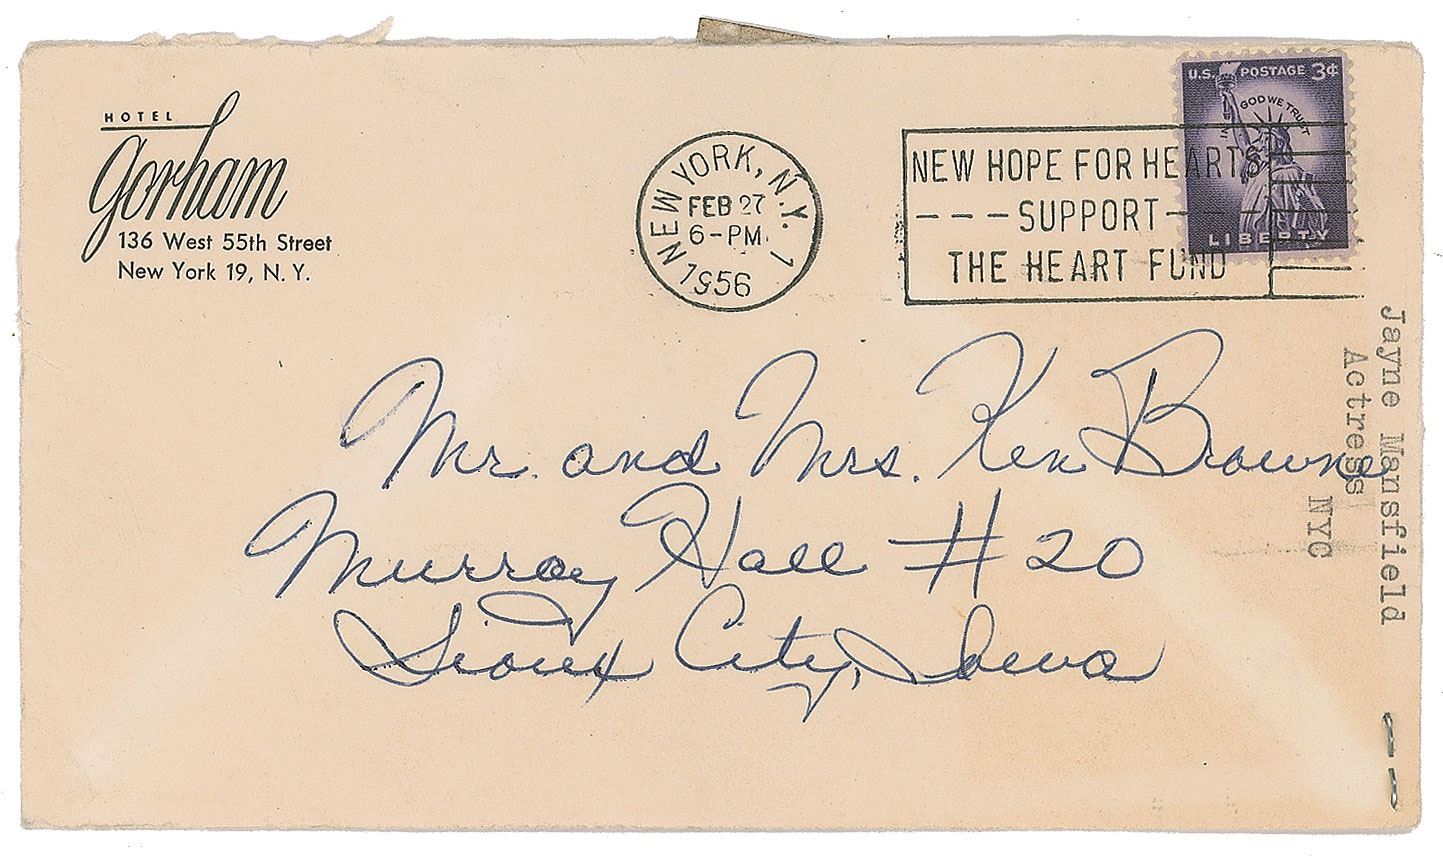 HOTEL
Gorham
136 West 55th Street
New York 19, N. Y.
NEW YORK, N.Y. 1
FEB 27
6-PM
1956
NEW HOPE FOR HEARTS
SUPPORT
THE HEART FUND
U.S. POSTAGE 3¢
IN GOD WE TRUST
LIBERTY
Mr. and Mrs. Ken Browne
Murray Hall #20
Sioux City, Iowa
Jayne Mansfield
Actress
NYC